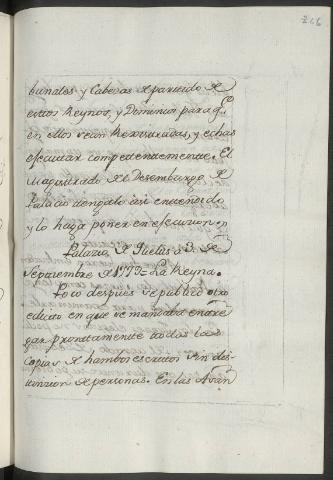 246
bunales y Cabezas de partido de
estos Reynos, y Dominios para q.e
en ellos sean Rexistradas, y echas
efecutar competentemente. El
Magistrado del Desembargo de
Palacio tengalo asi entendido
y lo haga poner en efecucion.
Palacio de Quelus à 3 de
Septiembre de 1779 = La Reyna.
Poco despues se publicò otro
edicto en que se mandaba entre
gar prontamente todas las
Copias de hambos escritos sin dis-
tincion de personas. En las